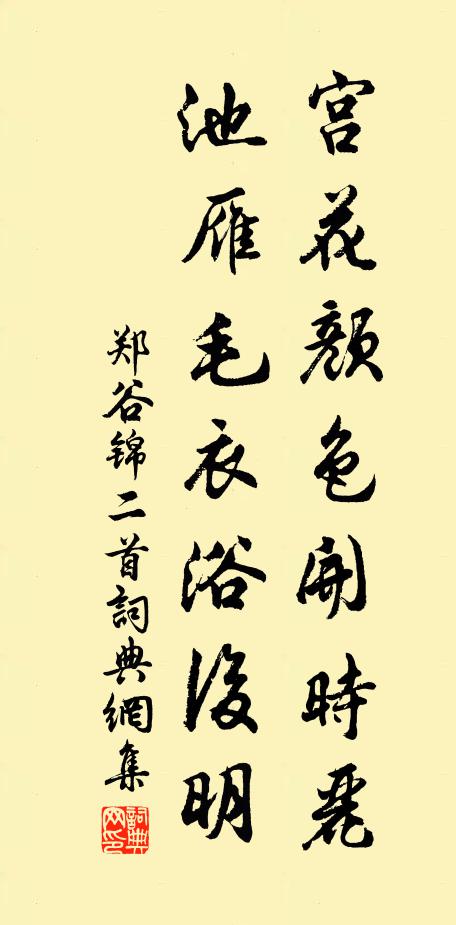 宫花顏色開時麗
池雁毛衣浴後明
郑谷锦二首詞典網集
詞典網印